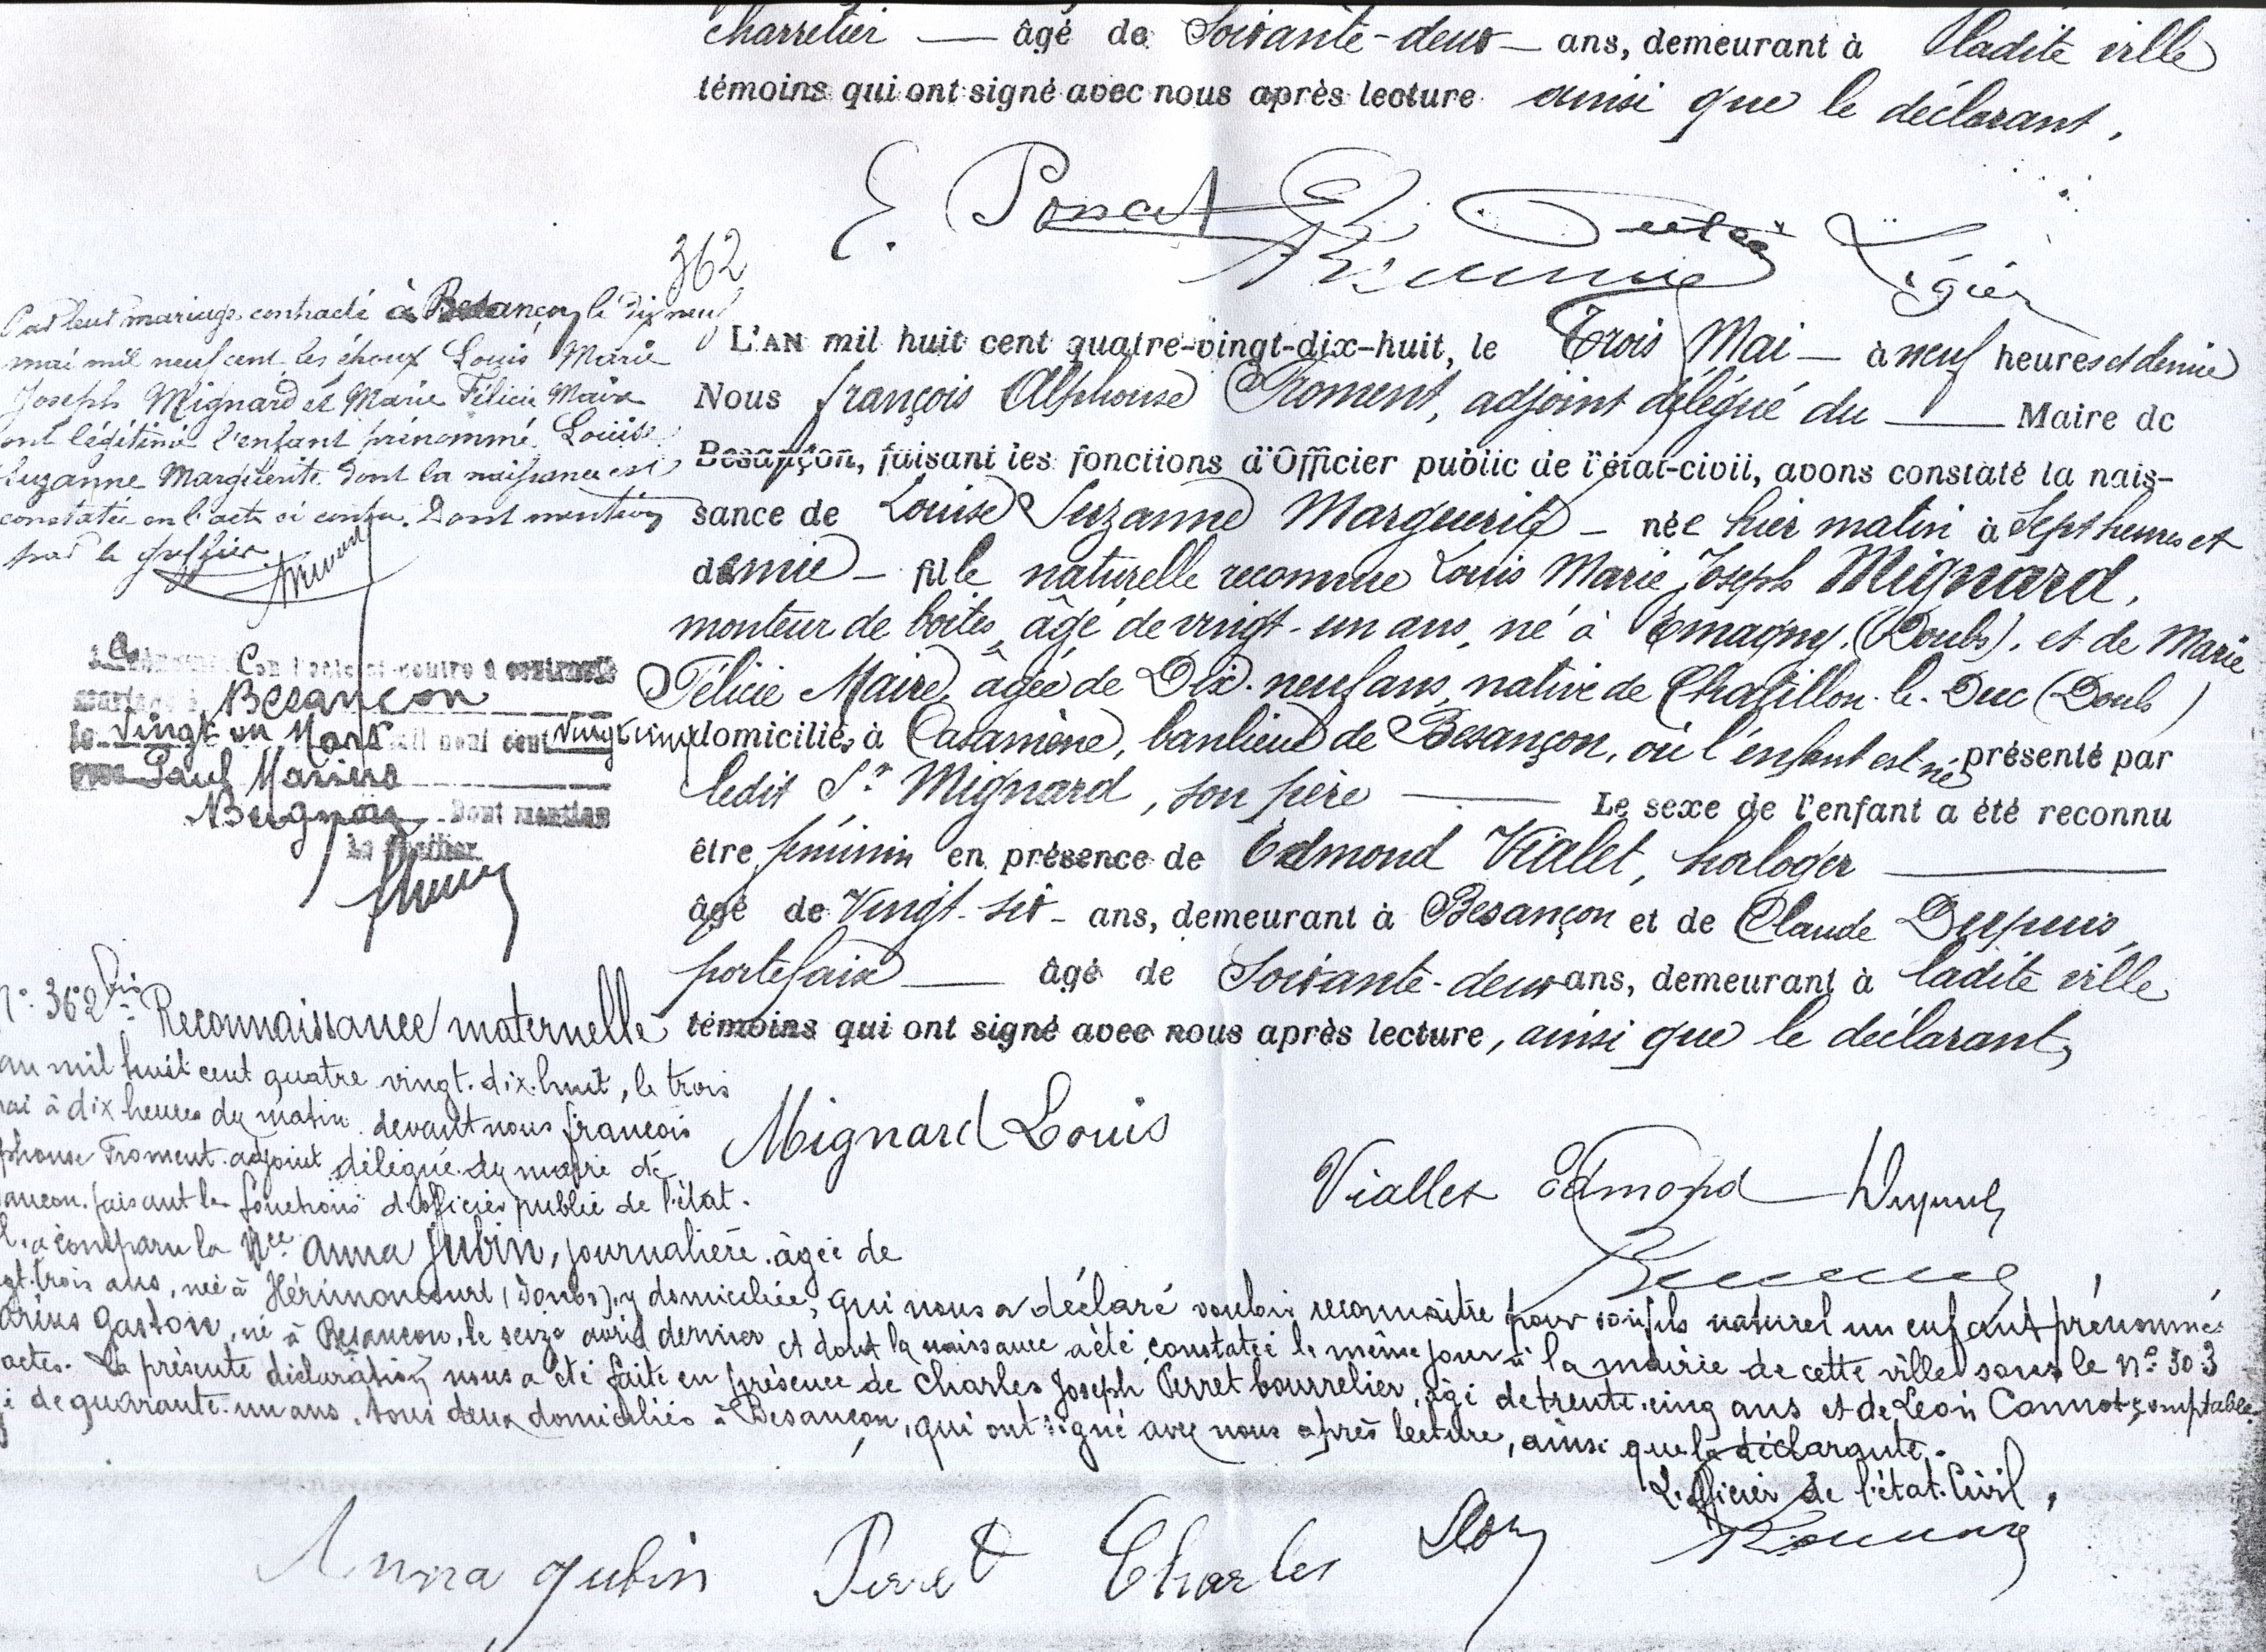 charretier — âgé de Soixante-deux — ans, demeurant à ladite ville
témoins qui ont signé avec nous après lecture ainsi que le déclarant,
E. Poncet
Légier
362
Par leur mariage contracté à Besançon le dix neuf
mai mil neuf cent, les époux Louis Marie
Joseph Mignard et Marie Félicie Maire
ont légitimé l'enfant prénommé Louise
Suzanne Marguerite dont la naissance est
constatée en l'acte ci contre. Dont mention
par le greffier.
L'AN mil huit cent quatre-vingt-dix-huit, le Trois Mai — à neuf heures et demie
Nous françois Alphonse Froment, adjoint délégué du — Maire de
Besançon, faisant les fonctions d'Officier public de l'état-civil, avons constaté la nais-
sance de Louise Suzanne Marguerite — née hier matin à Sept heures et
demie — fille naturelle reconnue Louis Marie Joseph Mignard,
monteur de boîtes, âgé de vingt-un ans, né à Emagny (Doubs), et de Marie
Félicie Maire, âgée de Dix-neuf ans, native de Chatillon-le-Duc (Doubs)
domiciliés à Casamène, banlieue de Besançon, où l'enfant est né présenté par
ledit Sr Mignard, son père — Le sexe de l'enfant a été reconnu
être féminin en présence de Edmond Vialet, horloger —
âgé de Vingt-six — ans, demeurant à Besançon et de Claude Dupuis,
portefaix — âgé de Soixante-deux ans, demeurant à ladite ville
témoins qui ont signé avec nous après lecture, ainsi que le déclarant,
Con l'acte ci-contre a contracté
mariage à Besançon
le vingt un Mars mil neuf cent vingt cinq
avec Paul Marius
Dont mention
Le Greffier
Mignard Louis
Viallet Edmond Dupuis
No 362 bis Reconnaissance maternelle
an mil huit cent quatre vingt-dix-huit, le trois
mai à dix heures du matin devant nous françois
phonse Froment adjoint délégué du maire de
ançon faisant les fonctions d'officier public de l'état-
l, a comparu la Née Anna Jubin, journalière âgée de
gt-trois ans, née à Hérimoncourt (Doubs), y domiciliée, qui nous a déclaré vouloir reconnaître pour son fils naturel un enfant prénommé
arius Gaston, né à Besançon, le seize avril dernier et dont la naissance a été constatée le même jour à la mairie de cette ville sous le No 303
actes. La présente déclaration nous a été faite en présence de Charles Joseph Perret bourrelier, âgé de trente-cinq ans et de Léon Connot comptable
é de quarante-un ans, tous deux domiciliés à Besançon, qui ont signé avec nous après lecture, ainsi que la déclarante.
L'officier de l'état-Civil,
Anna Jubin Perret Charles